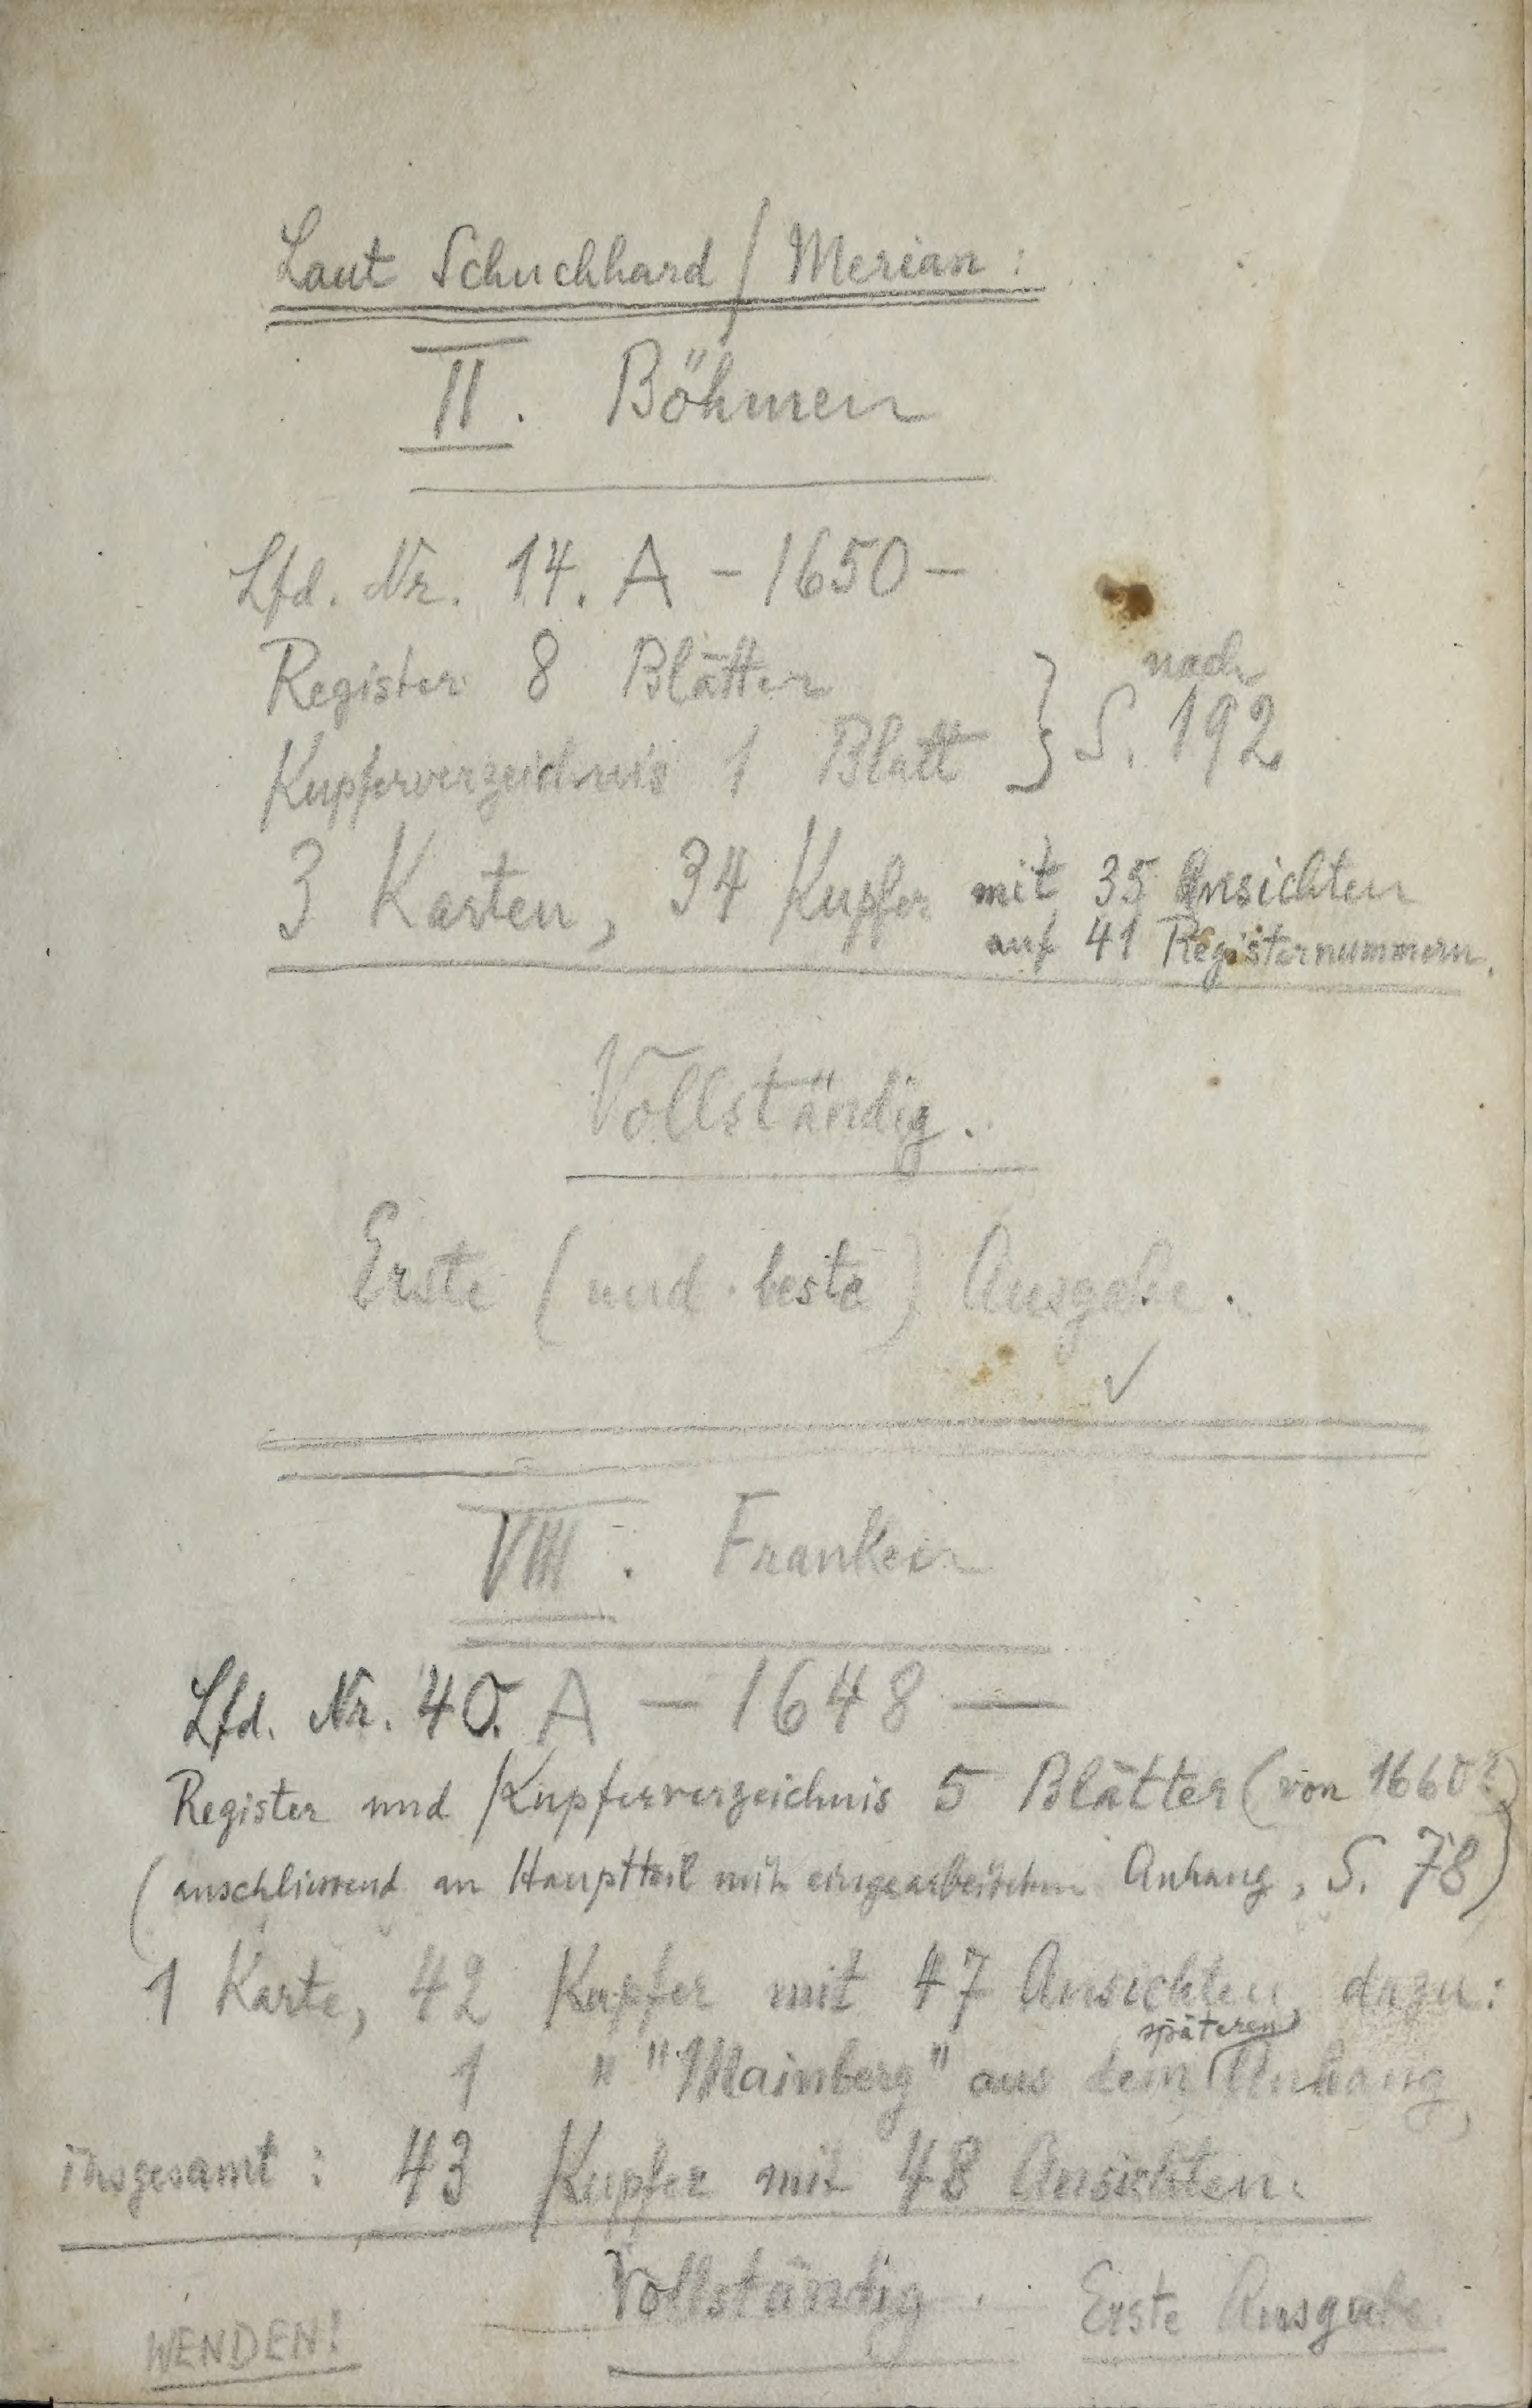 Laut Schuchhard / Merian:
II. Böhmen
Lfd. Nr. 14. A - 1650 -
Register 8 Blätter
Kupferverzeichnis 1 Blatt } nach S. 192
3 Karten, 34 Kupfer mit 35 Ansichten
auf 41 Registernummern.
Vollständig.
Erste (und beste) Ausgabe.
✓
VIII. Franken
Lfd. Nr. 40. A - 1648 -
Register und Kupferverzeichnis 5 Blätter (von 1660?)
(anschliessend an Hauptteil mit eingearbeitetem Anhang, S. 78)
1 Karte, 42 Kupfer mit 47 Ansichten, dazu:
1 " "Mainberg" aus dem späteren Anhang,
insgesamt: 43 Kupfer mit 48 Ansichten.
Vollständig. Erste Ausgabe.
WENDEN!